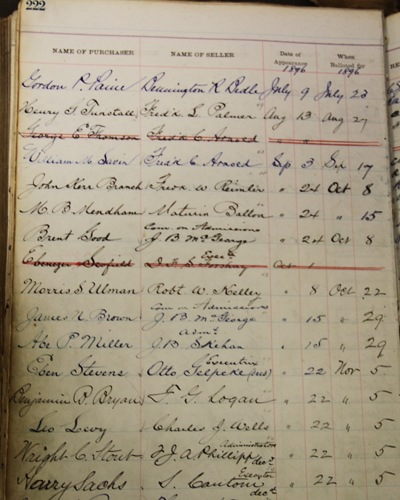 222
NAME OF PURCHASER NAME OF SELLER Date of Appearance 1896 When Balloted for 1896
Gordon P. Paine Remington R. Pedle July 9 July 23
Henry F. Tunstall Fred'k L. Palmer Aug 13 Aug 27
George E. Thomson Fred'k C. Arnold
William Fred'k C. Arnold Sep 3 Sep 17
John Kerr Branch Fred'k W. " 24 Oct 8
M. B. Mendham Maturin Ballou " 24 " 15
Com on Admissions
Brent Good J. B. McGeorge " 24 Oct 8
Ebenezer Scofield Exec'r Oct 1
Morris S. Ulman Robt. W. Kelley " 8 Oct 22
Com on Admissions
James N. Brown J. B. McGeorge " 15 " 29
Abe P. Miller J. B. Skehan " 15 " 29
Executrix
Eben Stevens Otto " 22 Nov 5
Benjamin P. Bryan F. G. Logan " 22 " 5
Leo Levy Charles J. Wells " 22 " 5
Administratrix
Wright C. Stout F. J. A. Phillipp dec'd " 22 " 5
Executor
Harry Sachs S. Cantoni dec'd " 22 " 5